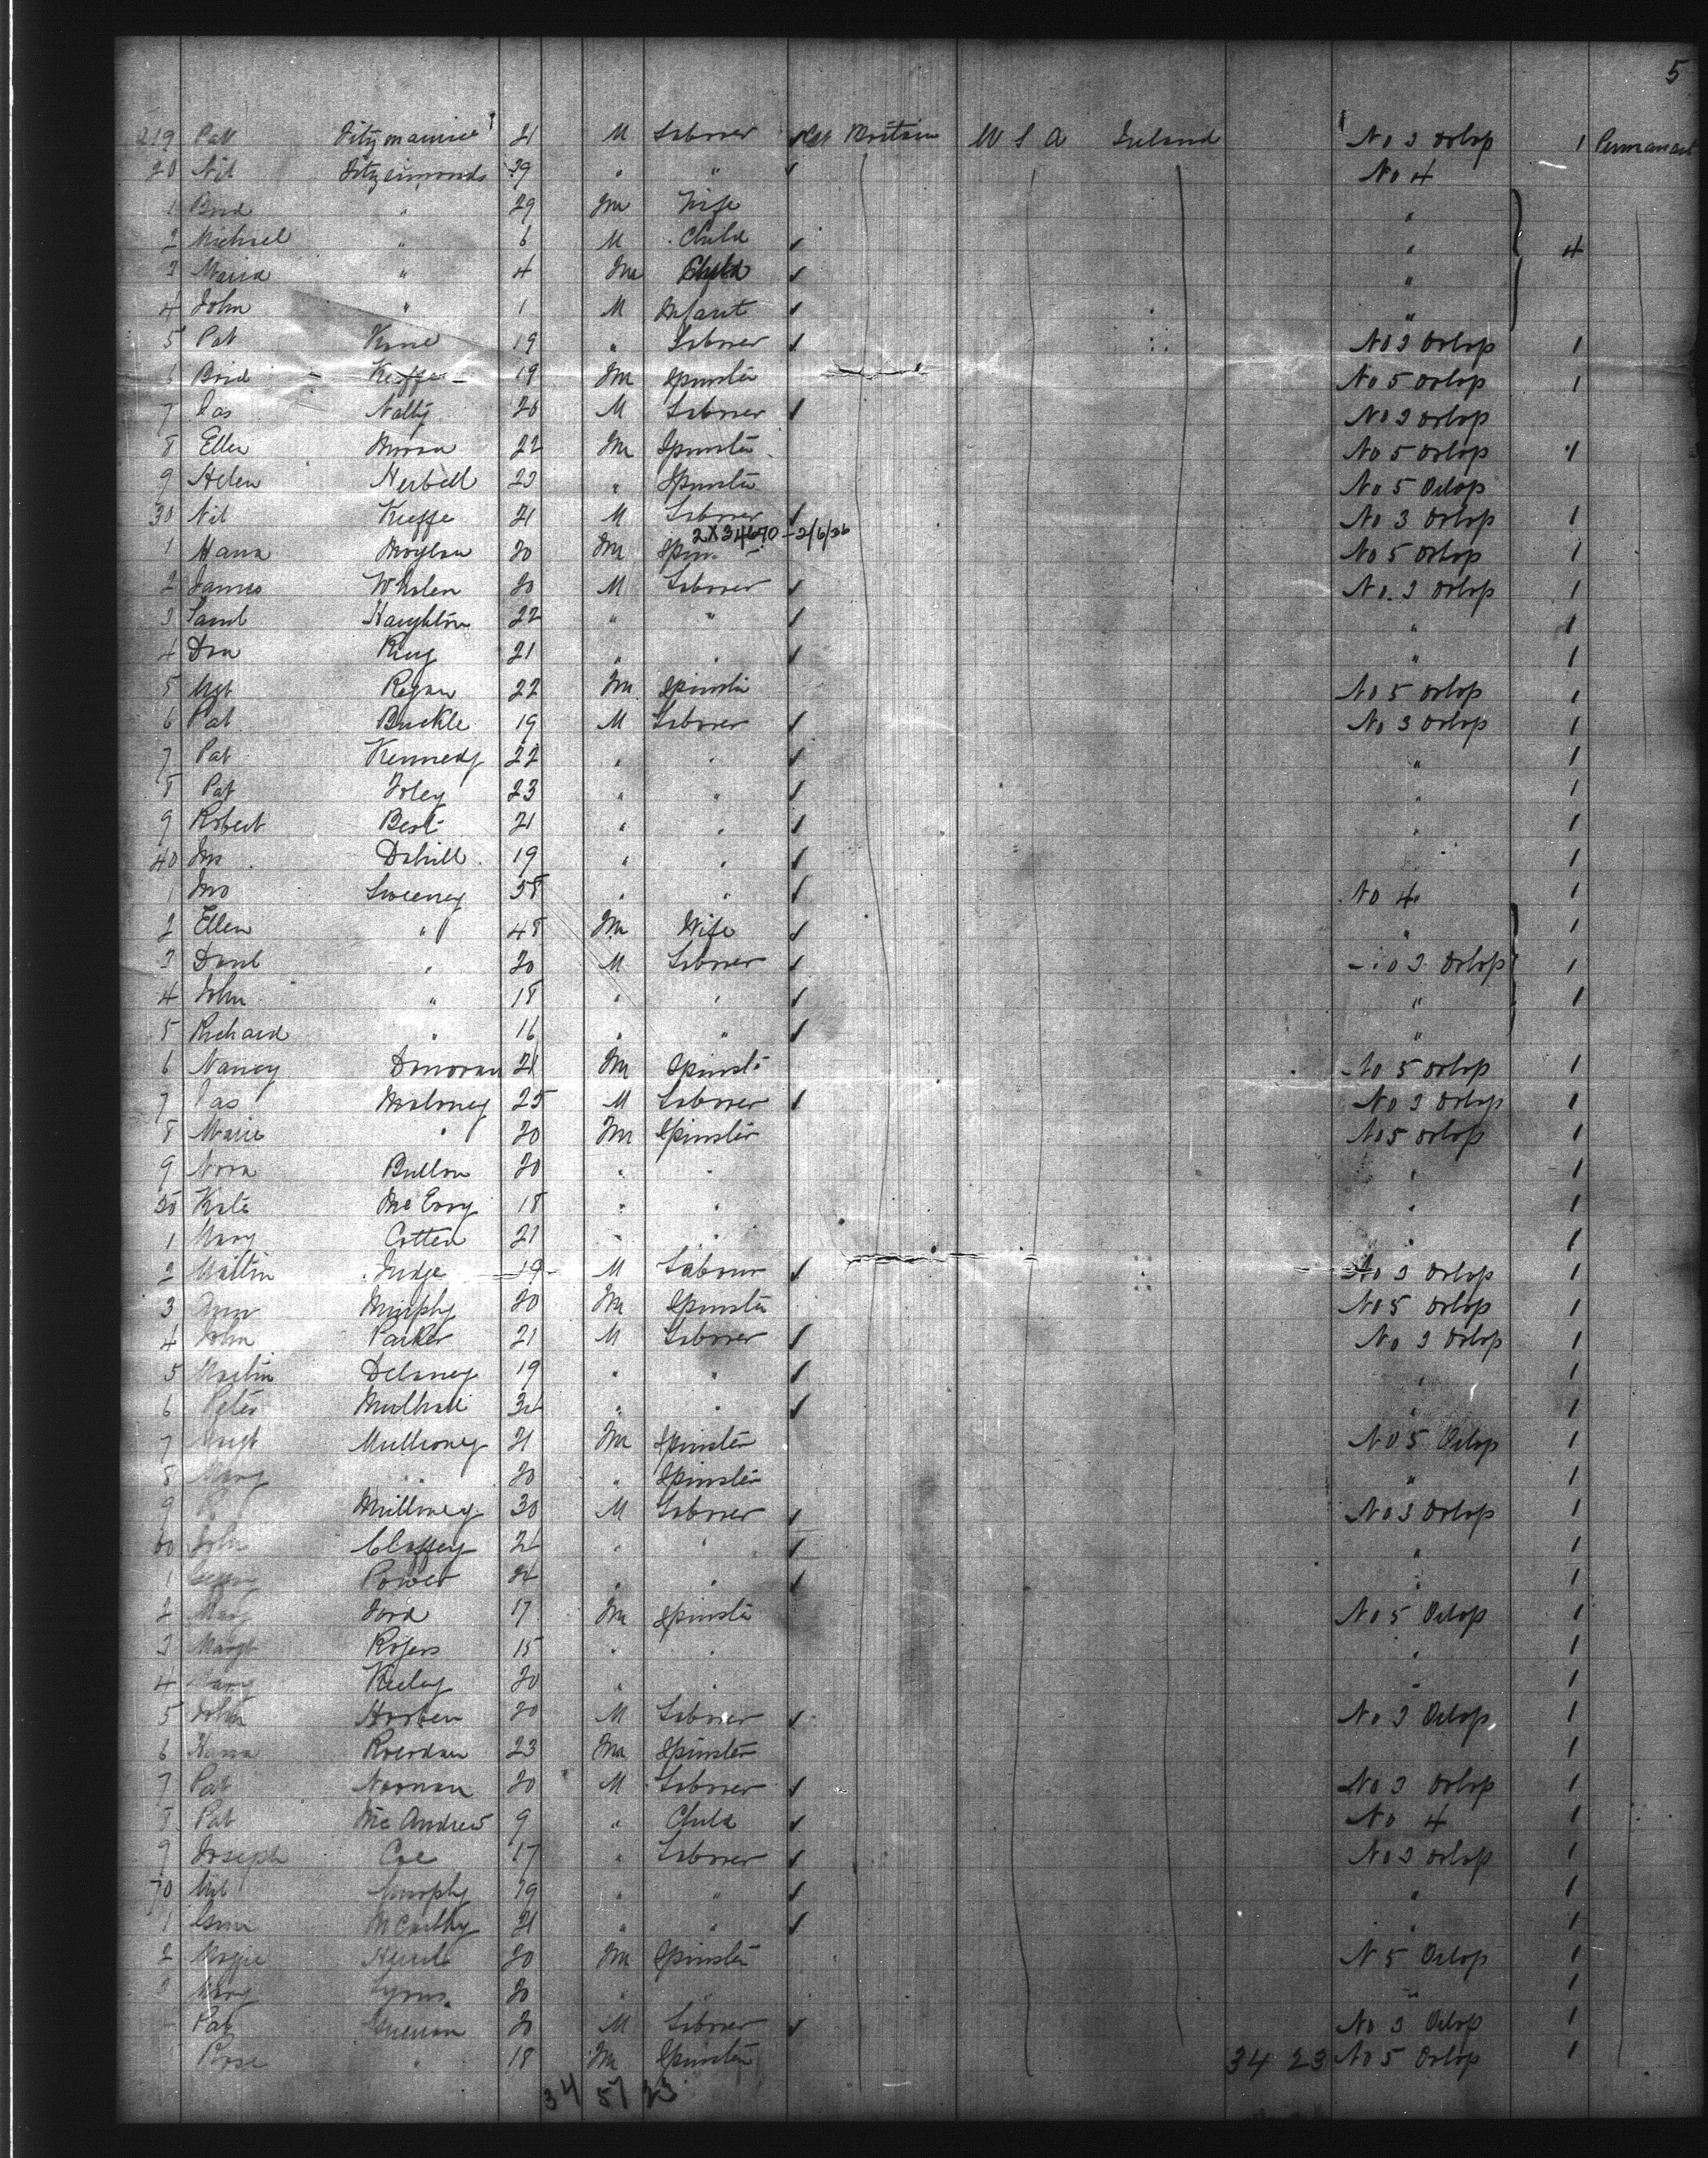 5
219 Pat Fitzmaurice 21 M Laborer Gt Britain U S A Ireland No 3 Orlop 1 Permanent
20 Fitzsimonds 29 " " No 4
1 Brid " 29 Fm Wife "
2 Michael " 6 M Child " 4
3 Maria " 4 Fm Child "
4 John " 1 M Infant "
5 Pat 19 " Laborer No 3 Orlop 1
6 Brid Keeffe 19 Fm Spinster No 5 Orlop 1
7 Jas Nally 20 M Laborer No 3 Orlop
8 Ellen Moran 22 Fm Spinster No 5 Orlop 1
9 Helen 23 " Spinster No 5 Orlop
30 Keeffe 21 M Laborer No 3 Orlop 1
2X34670 - 2/6/36
1 Hana Moylan 20 Fm Spin No 5 Orlop 1
2 James Whelen 20 M Laborer No. 3 Orlop 1
3 Saml Haughton 22 " " " 1
4 Dan King 21 " " " 1
5 Mgt Regan 22 Fm Spinster No 5 Orlop 1
6 Pat Buckle 19 M Laborer No 3 Orlop 1
7 Pat Kennedy 22 " " " 1
8 Pat Foley 23 " " " 1
9 Robert Best 21 " " " 1
40 Jno Dahill 19 " " 1
1 Jno Sweeney 58 " " No 4 1
2 Ellen " 48 Fm Wife " 1
3 Danl " 20 M Laborer No 3 Orlop 1
4 John " 18 " " " 1
5 Richard " 16 " " "
6 Nancy Donovan 21 Fm Spinst No 5 Orlop 1
7 Jas Maloney 25 M Laborer No 3 Orlop 1
8 Marie " 20 Fm Spinster No 5 Orlop 1
9 Nora 20 " " " 1
50 Kate McEvoy 18 " " " 1
1 Mary Cotten 21 " " " 1
2 Martin Judge 19 M Labour No 3 Orlop 1
3 Ann Murphy 20 Fm Spinster No 5 Orlop 1
4 John Parker 21 M Laborer No 3 Orlop 1
5 Martin Delaney 19 " " " 1
6 Peter Mulhall " " " 1
7 Margt Mulloney 21 Fm Spinster No 5 Orlop 1
8 Mary " 20 " Spinster " 1
9 Mulloney 30 M Laborer No 3 Orlop 1
60 John Claffey " " " 1
1 Power " " " 1
2 Mary Ford 17 Fm Spinster No 5 Orlop 1
3 Margt Rogers 15 " " " 1
4 Mary Kieley 20 " " " 1
5 John Horben 20 M Laborer No 3 Orlop 1
6 Hana Roerdan 23 Fm Spinster 1
7 Pat Noonan 20 M Laborer No 3 Orlop 1
8 Pat McAndrew 9 " Child No 4 1
9 Joseph Coe 17 " Laborer No 3 Orlop 1
70 Murphy 19 " " " 1
1 McCarthy 21 " " " 1
2 Maggie 20 Fm Spinster N 5 Orlop 1
3 Mary Lyons 20 " " " 1
Pat 20 M Laborer No 3 Orlop 1
Rose " 18 Fm Spinster 34 23 No 5 Orlop 1
34 57 23